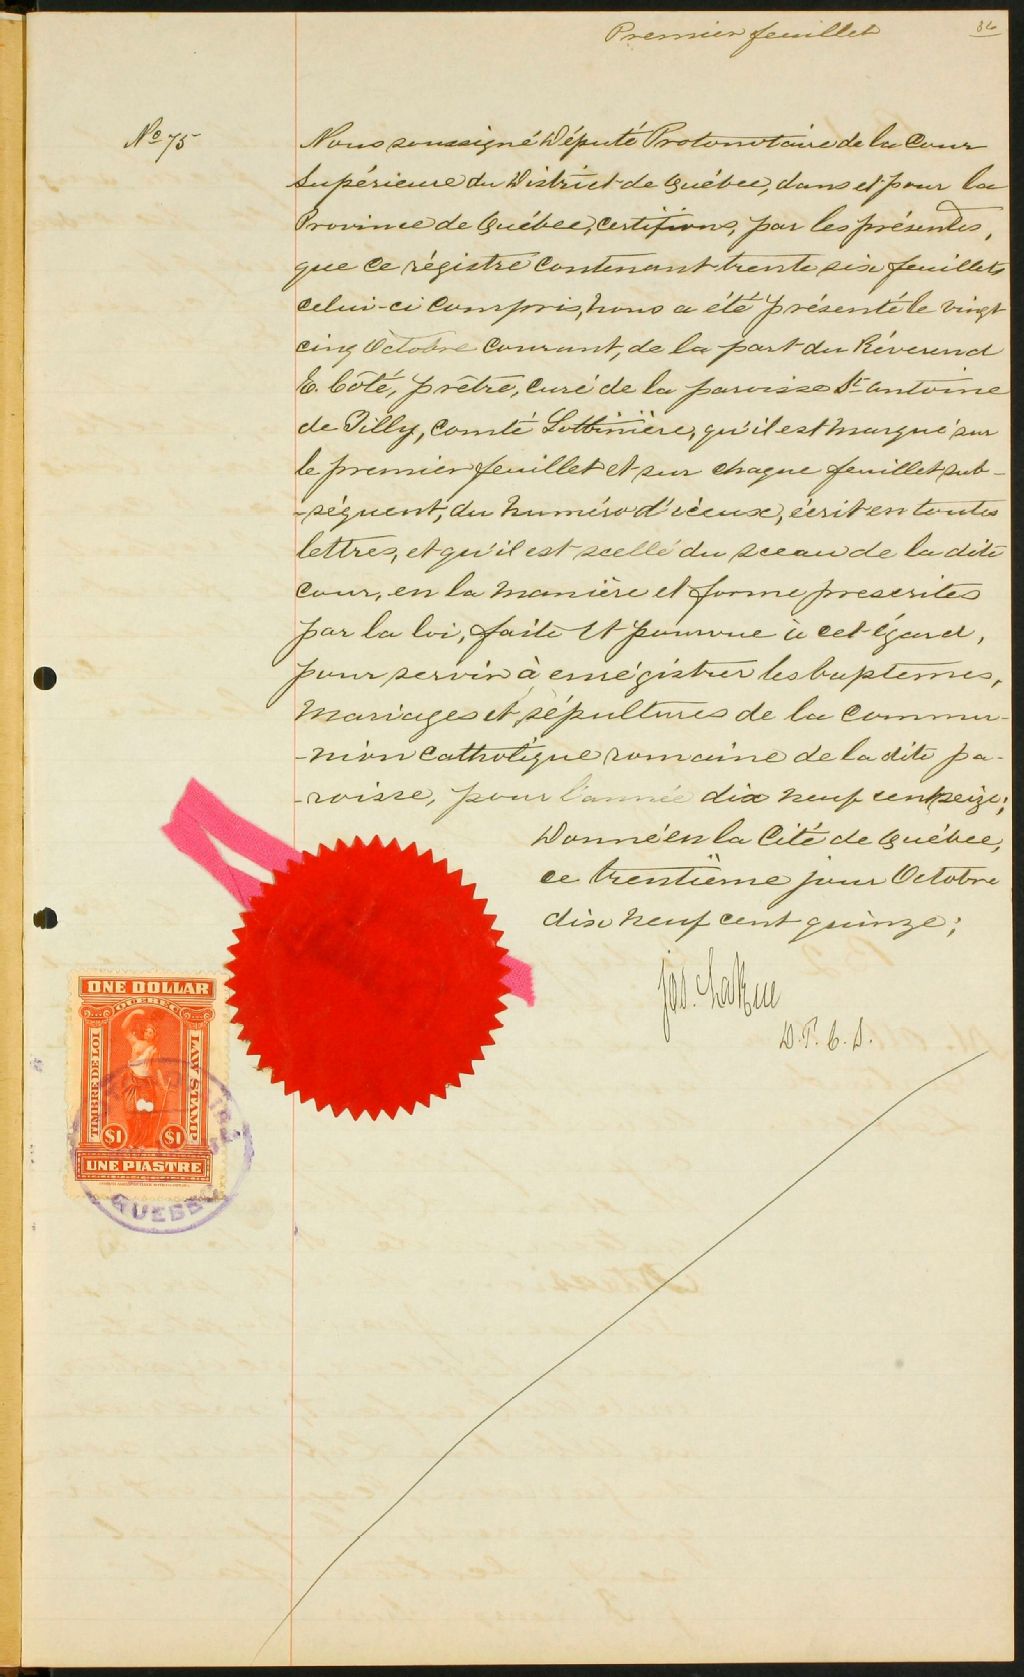 Premier feuillet
36
No 75
Nous soussigné Député Protonotaire de la Cour
Supérieure du District de Québec, dans et pour la
Province de Québec, certifions, par les présentes,
que ce régistre contenant trente six feuillets
celui-ci compris, nous a été présenté le vingt
cinq Octobre courant, de la part du Révérend
E. Côté, prêtre, curé de la paroisse St antoine
de Tilly, comté Lotbinière, qu'il est marqué sur
le premier feuillet et sur chaque feuillet sub-
-séquent, du numéro d'iceux, écrit en toutes
lettres, et qu'il est scellé du sceau de la dite
cour, en la manière et forme prescrites
par la loi, faite et pourvue à cet égard,
pour servir à enrégistrer les baptemes,
mariages et sépultures de la commu-
-nion catholique romaine de la dite pa-
-roisse, pour l'année dix neuf cent seize;
Donné en la Cité de Québec,
ce trentième jour Octobre
dix neuf cent quinze;
Jos. LaRue
D. P. C. S.
ONE DOLLAR
QUEBEC
TIMBRE DE LOI
LAW STAMP
$1 $1
UNE PIASTRE
QUEBEC